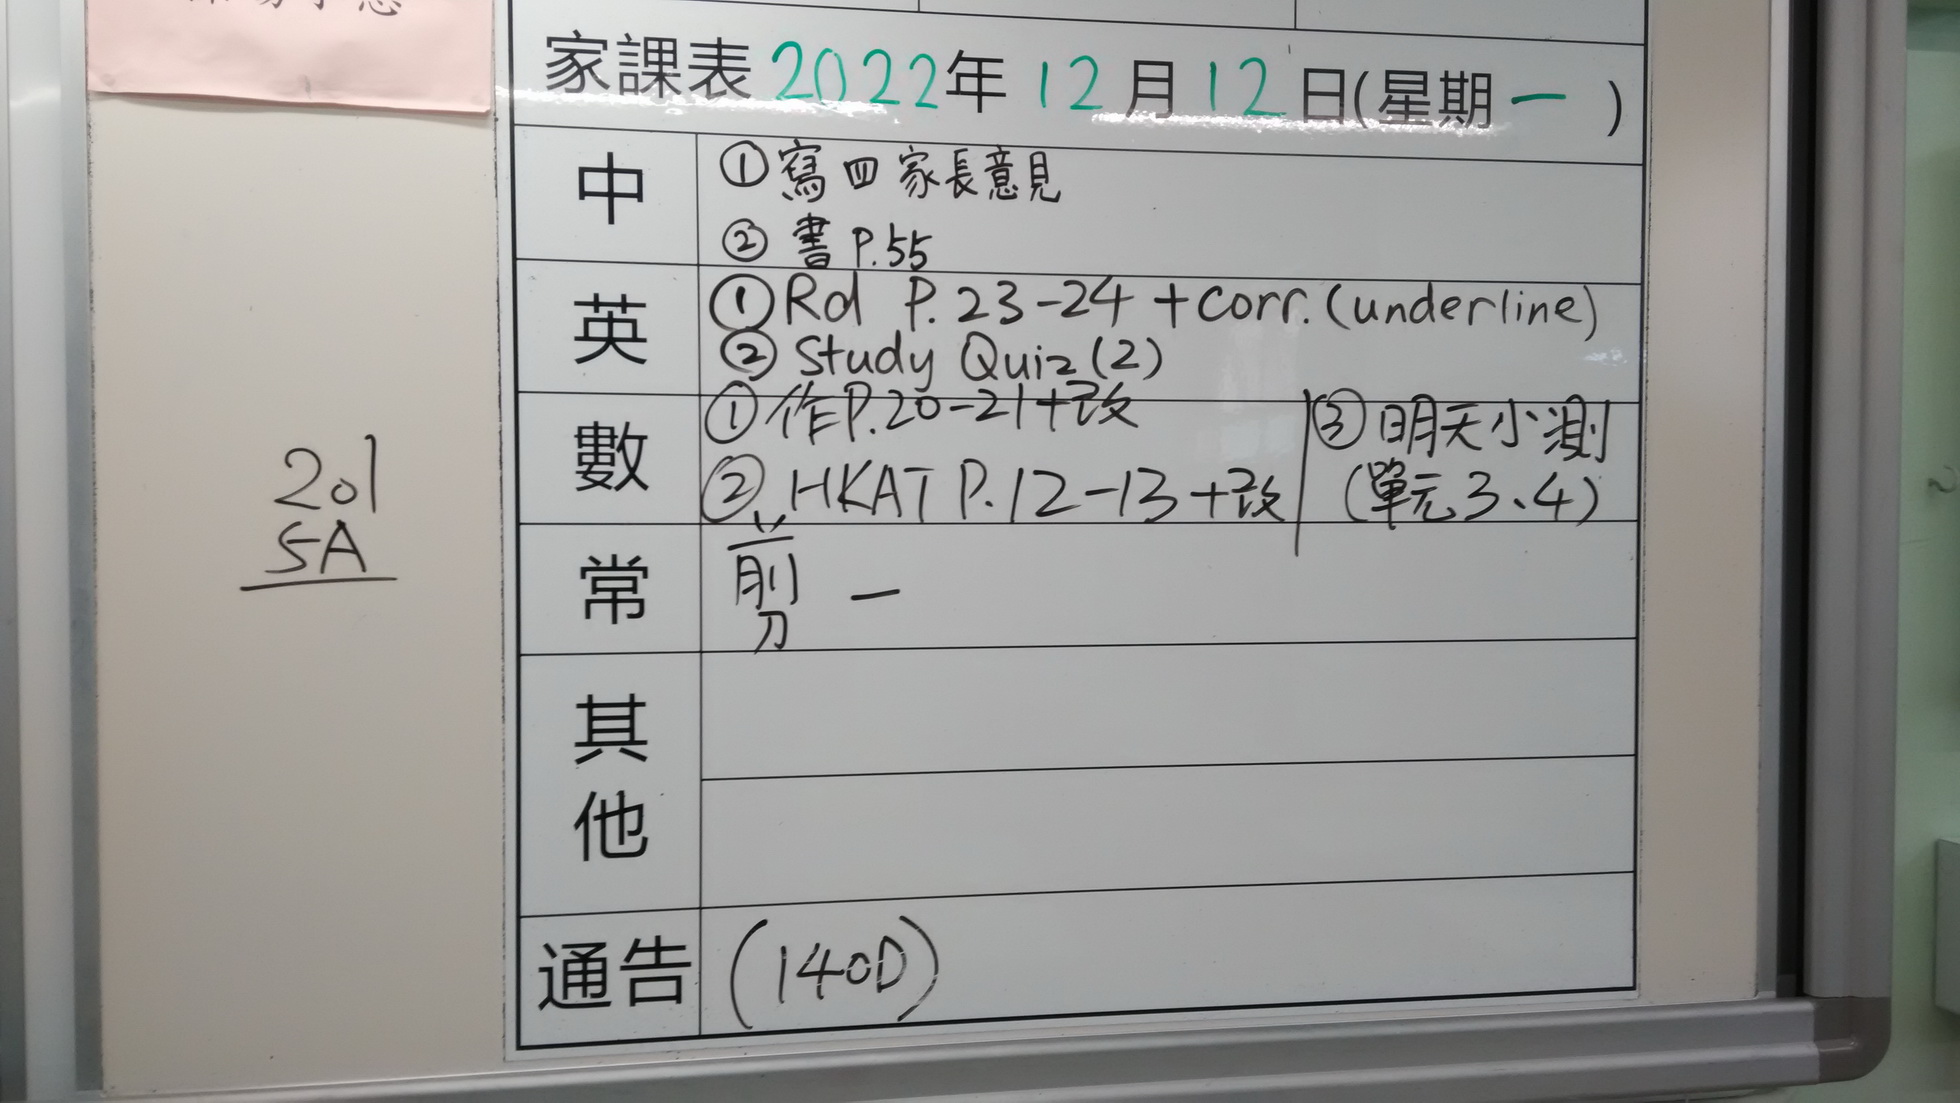 家課表 2022年 12月 12日(星期一)
中
①寫四家長意見
②書 P.55
英
①Rd P.23-24 +corr.(underline)
②Study Quiz(2)
數
①作P.20-21+改
②HKAT P.12-13+改
③明天小測
(單元3、4)
常
剪一
其他
通告
(140D)
201
5A